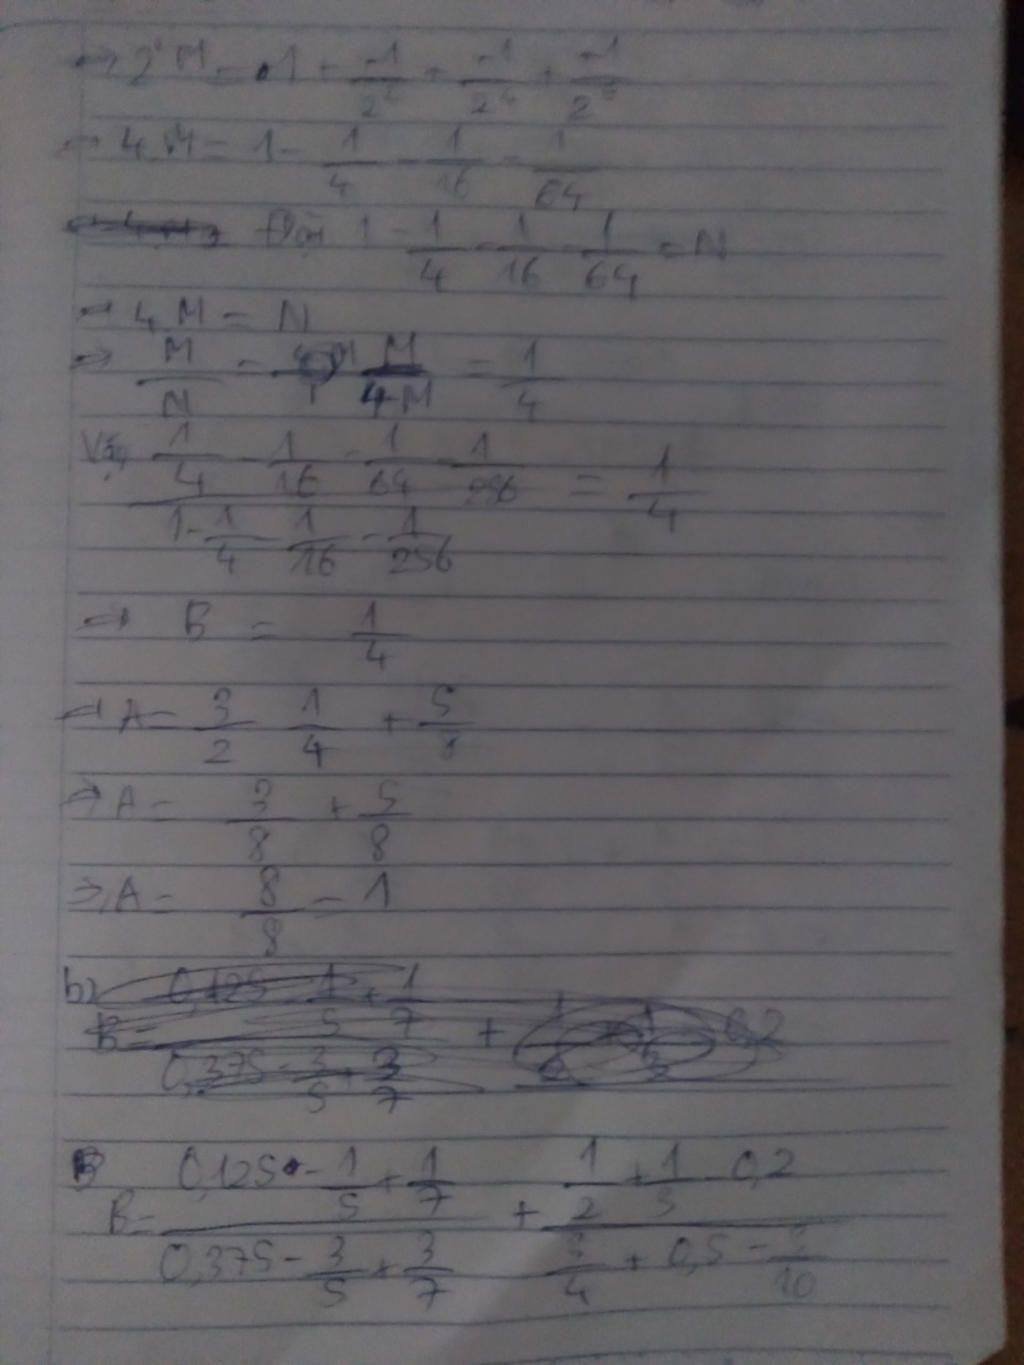 → 2² M = 1 + -1/2² + -1/2⁴ + -1/2⁶
→ 4 M = 1 - 1/4 - 1/16 - 1/64
Đặt 1 - 1/4 - 1/16 - 1/64 = N
→ 4 M = N
→ M/N = M/4M = 1/4
Vậy (1/4 - 1/16 - 1/64 - 1/256) / (1 - 1/4 - 1/16 - 1/256) = 1/4
→ B = 1/4
→ A = 3/2 1/4 + 5/8
→ A = 3/8 + 5/8
→ A = 8/8 = 1
b)
B = (0,125 - 1/5 + 1/7) / (0,375 - 3/5 + 3/7) + (1/2 + 1/3 - 0,2) / (3/4 + 0,5 - 3/10)